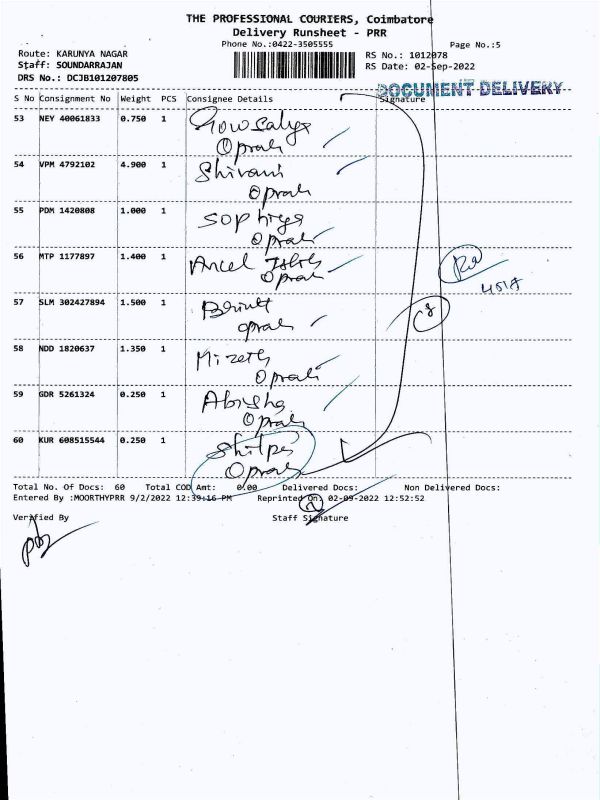 THE PROFESSIONAL COURIERS, Coimbatore
Delivery Runsheet - PRR
Phone No.:0422-3505555
Page No.:5
Route: KARUNYA NAGAR
RS No.: 1012078
Staff: SOUNDARRAJAN
RS Date: 02-Sep-2022
DRS No.: DCJB101207805
DOCUMENT DELIVERY
S No Consignment No Weight PCS Consignee Details Signature
53 NEY 40061833 0.750 1 Gowsalya
54 VPM 4792102 4.900 1 Shivani
55 PDM 1420808 1.000 1 Sophiya
56 MTP 1177897 1.400 1 Ancel
57 SLM 302427894 1.500 1
58 NDD 1820637 1.350 1
59 GDR 5261324 0.250 1 Abisha
60 KUR 608515544 0.250 1 Shilpa
Total No. Of Docs: 60 Total COD Amt: 0.00 Delivered Docs: Non Delivered Docs:
Entered By :MOORTHYPRR 9/2/2022 12:39:16 PM Reprinted On: 02-09-2022 12:52:52
Verified By Staff Signature